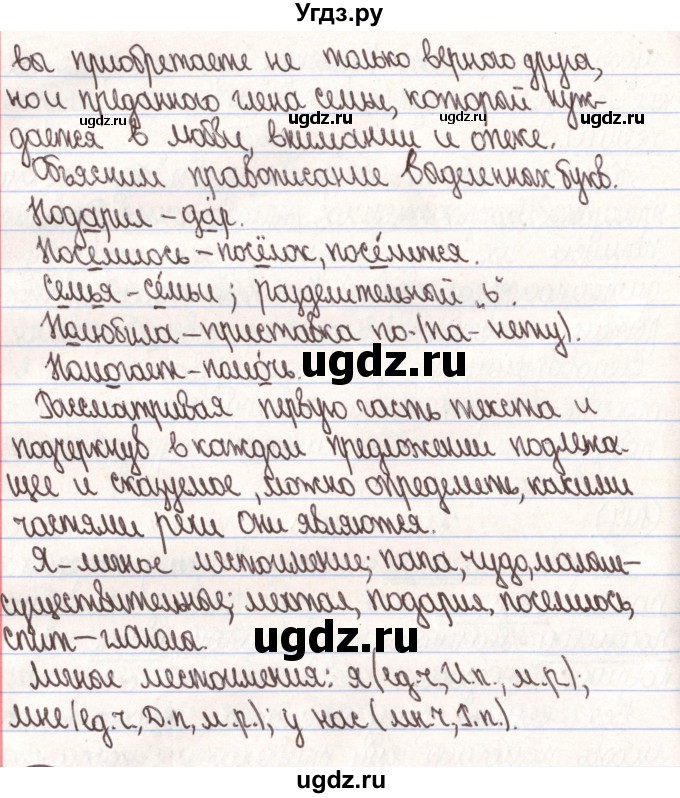 Угдз.ру
вы приобретаете не только верного друга,
но и преданного члена семьи, который нуж-
дается в любви, внимании и опеке.
Объясним правописание выделенных букв.
Подарил – да́р.
Поселилось – посёлок, посе́лится.
Семья се́мьи, разделительный „ь“.
Полюбила – приставка по- (па- нету).
Помогает – помо́чь.
Рассматривая первую часть текста и
подчеркнув в каждом предложении подлежа-
щее и сказуемое, можно определить, какими
частями речи они являются.
Я – личное местоимение; папа, чудо, малыш –
существительное; мечтал, подарил, поселилось,
спит – глагол.
Личное местоимения: я (ед.ч, И.п., м.р.);
мне (ед.ч, Д.п, м.р.); у нас (мн.ч, Р.п.).
ugdz.ru
ugdz.ru
ugdz.ru
ugdz.ru
ugdz.ru
ugdz.ru
ugdz.ru
ugdz.ru
ugdz.ru
ugdz.ru
ugdz.ru
ugdz.ru